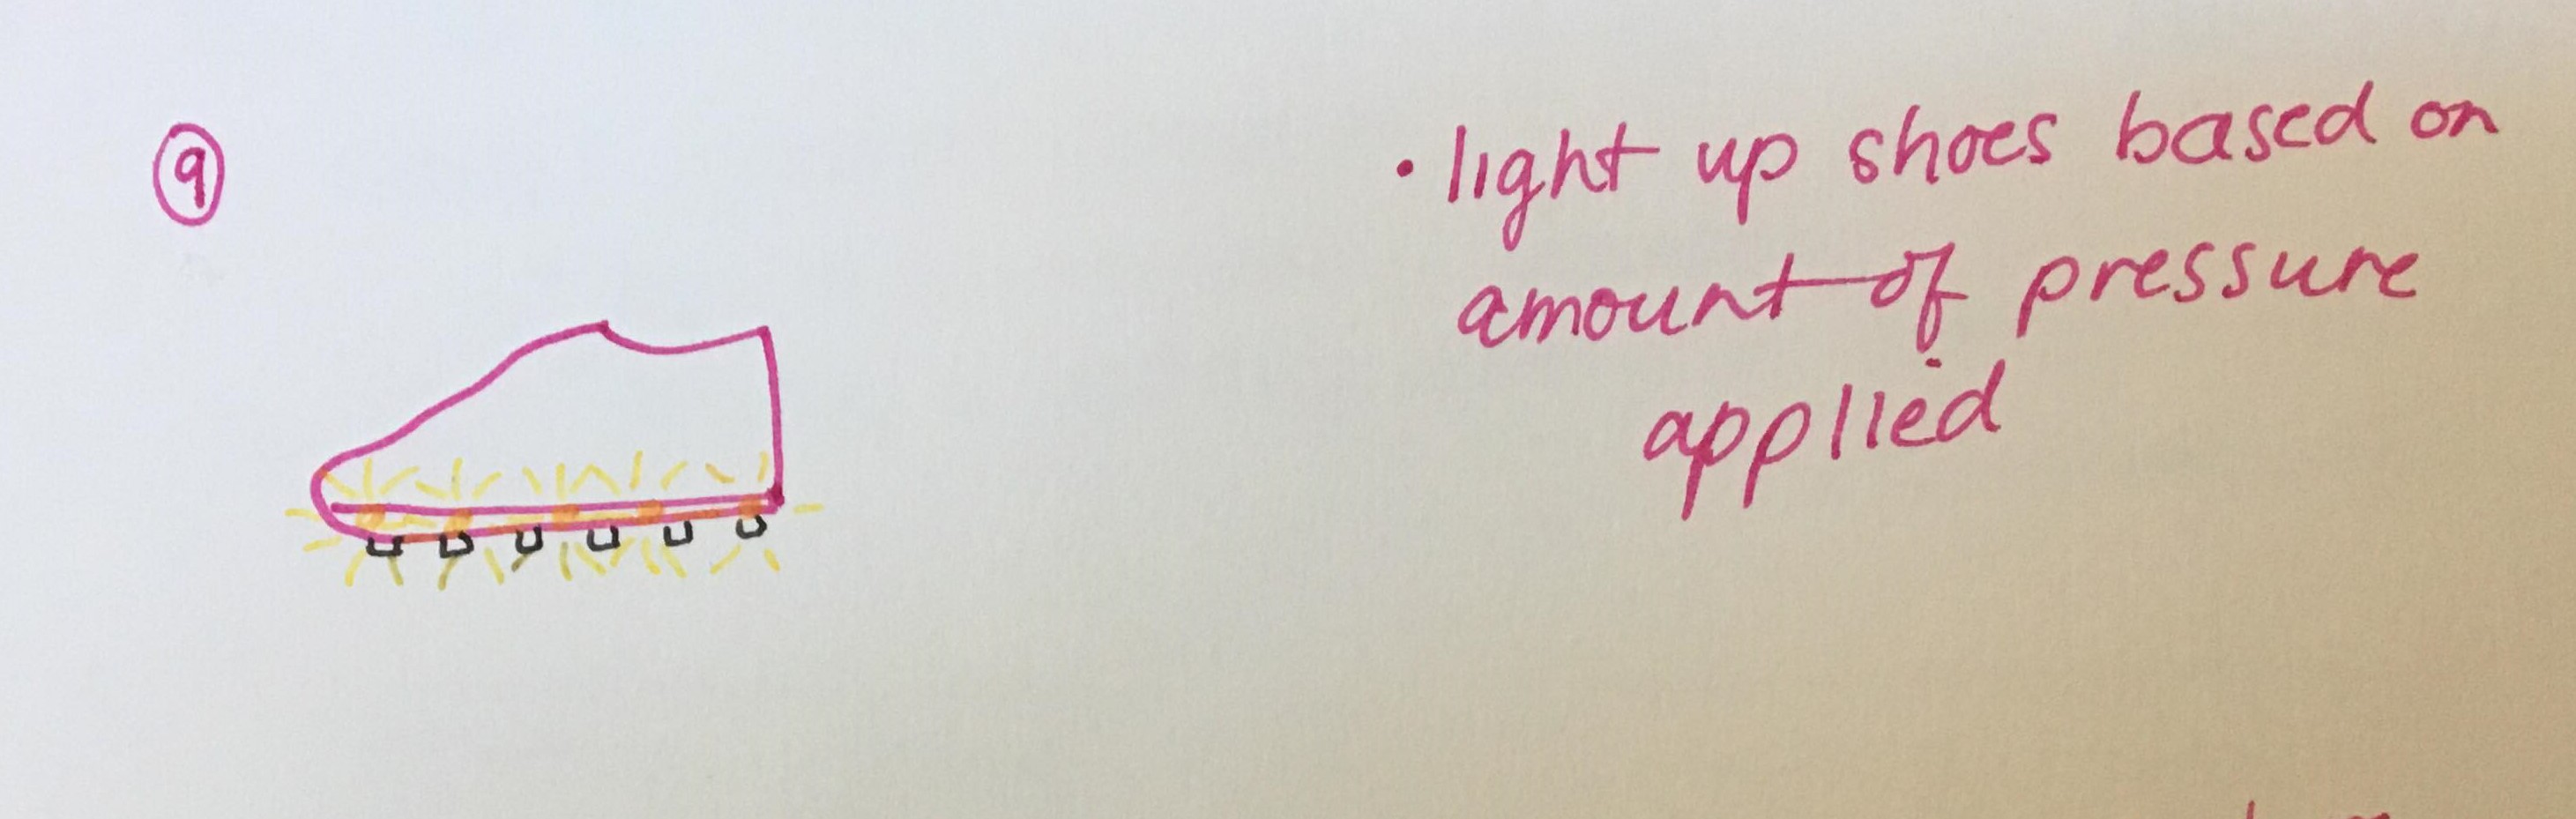 9
• light up shoes based on
amount of pressure
applied